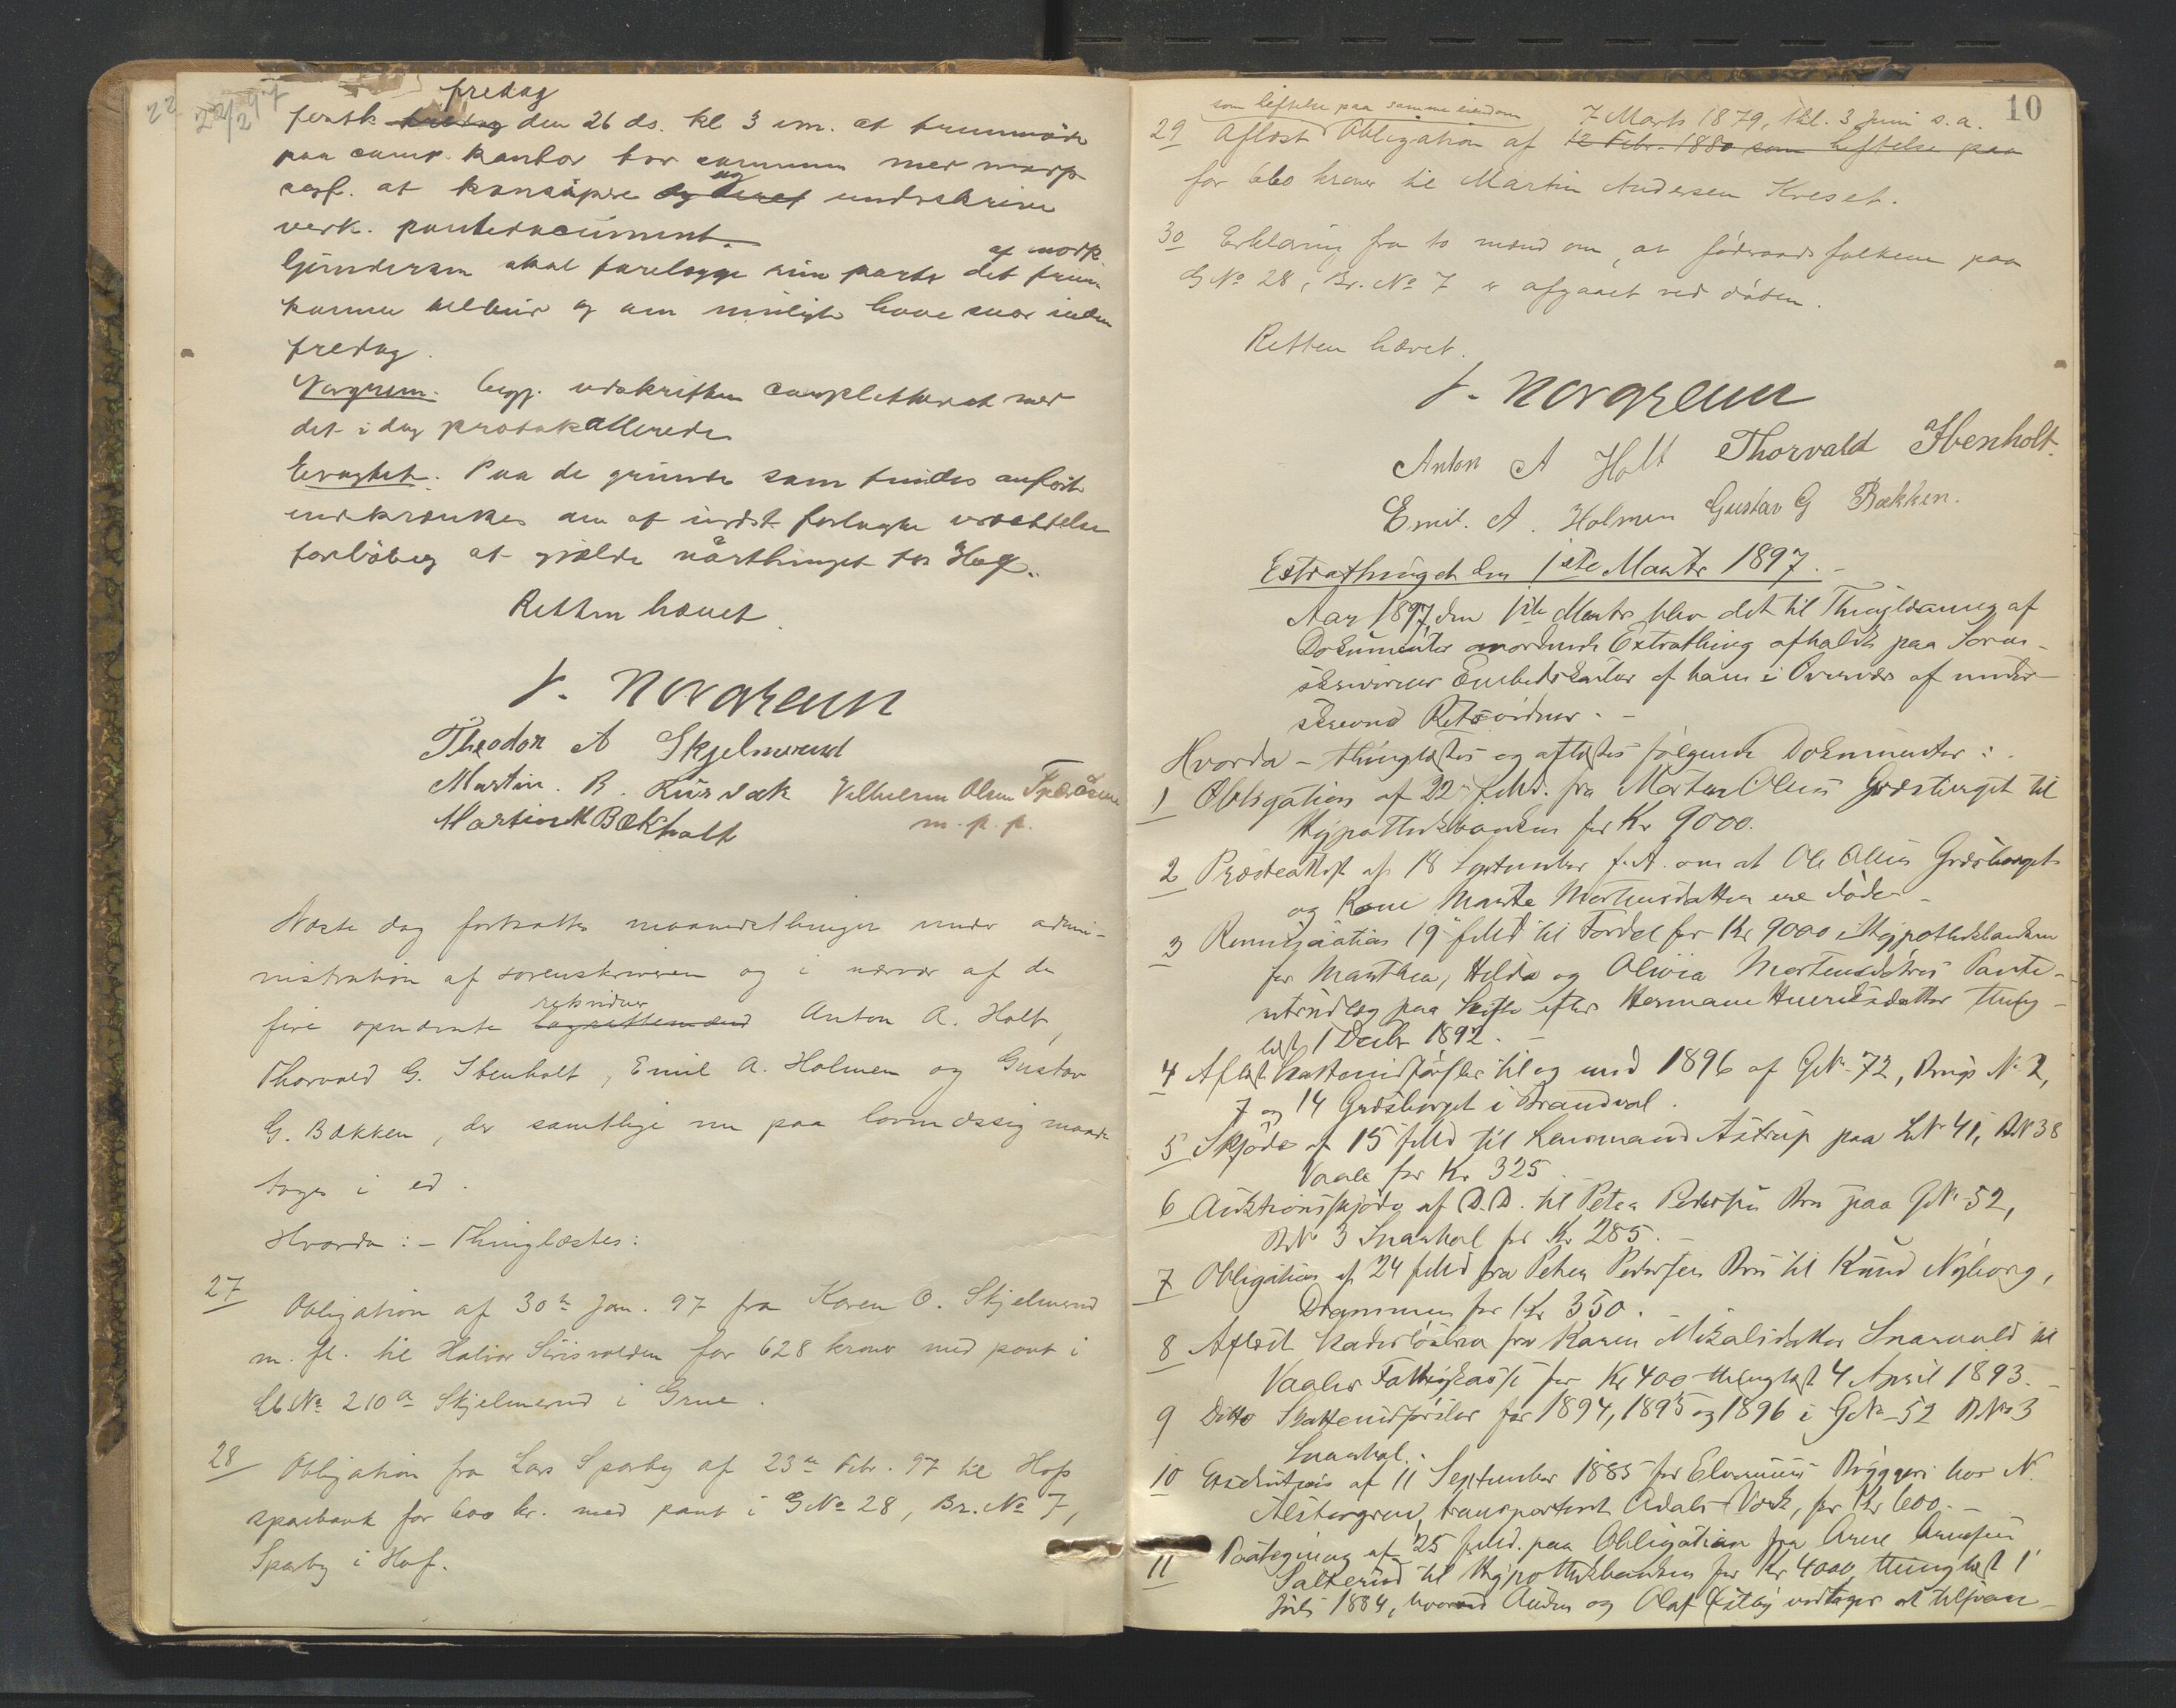 22/2 97
fredag
den 26 ds. kl 3 em. at fremmøde
paa kontor for sammen med
at og underskrive
verk. pantedocument.
af mod.
Gundersen skal forelægge sin part det frem-
komne og om muligt have svar inden
fredag.
Norgrenn. begj. udskriften completteret med
det i dag protokollerede
Eragtet. Paa de grunde som findes anført
indskrænkes den af indst. forlagte udsættelse
foreløbig at gjælde vårthinget for Hof.
Retten hævet.
J. Norgrenn
Theodor A Skjelmerud
Martin. B. Vilhelm Olsen
Martin M Bækholt m. p. p.
Næste dag fortsattes maanedsthinget under admi-
nistration af sorenskriveren og i nærvær af de
retsvidner
fire opnævnte lagrettemænd Anton A. Holt,
Thorvald G. Ibenholt, Emil A. Holmen og Gustav
G. Bækken, der samtlige nu paa lovmæssig maade
toges i ed.
Hvorda: – Thinglæstes:
27 Obligation af 30te Jan. 97 fra Karen O. Skjelmerud
m. fl. til Halvor Sirisvolden for 628 kroner med pant i
Lb No 210a Skjelmerud i Grue.
28 Obligation fra Lars Sparby af 23de Febr. 97 til Hofs
sparebank for 600 kr. med pant i GNo 28, Br. No 7,
Sparby i Hof.
10
som heftelse paa samme eiendom 7 Marts 1879, thl. 3 Juni s. a.
29 Aflæst Obligation af 12 Febr. 1880 som heftelse paa
for 660 kroner til Martin Andersen Kreset.
30 Erklæring fra to mænd om, at føderaadsfolkene paa
GNo 28, Br. No 7 er afgaaet ved døden.
Retten hævet.
J. Norgrenn
Anton A Holt Thorvald Ibenholt.
Emil. A. Holmen Gustav G Bækken.
Extrathinget den 1ste Marts 1897. –
Aar 1897, den 1ste Marts blev det til Thinglæsning af
Dokumenter anordnede Extrathing afholdt paa Soren-
skriverens Embedskontor af ham i Overvær af under-
skrevne Retsvidner. –
Hvorda – thinglæstes og aflæstes følgende Dokumenter:
1 Obligation af 22 f. Md. fra Morten Olsen Græsberget til
Hypothekbanken for Kr 9000.
2 Præsteattest af 18 September f. A. om at Ole Olsen Græsberget
og Kone Marte Mortensdatter ere døde –
3 Renunciation 19 f Md til Fordel for Kr 9000 i Hypothekbanken
for Manthea, Hilda og Olivia Mortensdøtres Pante-
udlæg paa Skifte efter Hermane Henriksdatter thing-
læst 1 Decbr 1892. –
4 Aflæst Skatteudførsler til og med 1896 af GN 72, Brugs N 2,
7 og 14 Græsberget i Brandval.
5 Skjøde af 15 f Md til Lensmand Astrup paa LN 41, BN 38
Vaale for Kr 325
6 Auktionsskjøde af D. D. til Peter Pedersen Bru paa GN 52,
BN 3 Snarhol for Kr 285. –
7 Obligation af 24 f Md fra Peter Pedersen Bru til Knud Nyborg,
Drammen for Kr 350.
8 Aflæst fra Karen Mikalsdatter Snaruold til
Vaaler Fattigkasse for Kr 400 thinglæst 4 April 1893. –
9 Ditto Skatteudførsler for 1894, 1895 og 1896 i GN 52 BN 3
Snarhol.
10 af 11 September 1885 for Elverums Bryggeri hos N.
Alstergren, transporteret Adals Værk, for Kr 600. –
11 Paategning af 25 f Md. paa Obligation fra Arne Arnesen
Salterud til Hypothekbanken for Kr 4000, thinglæst 1
Juli 1884, hvorved og Olaf vedtager at tilsvare